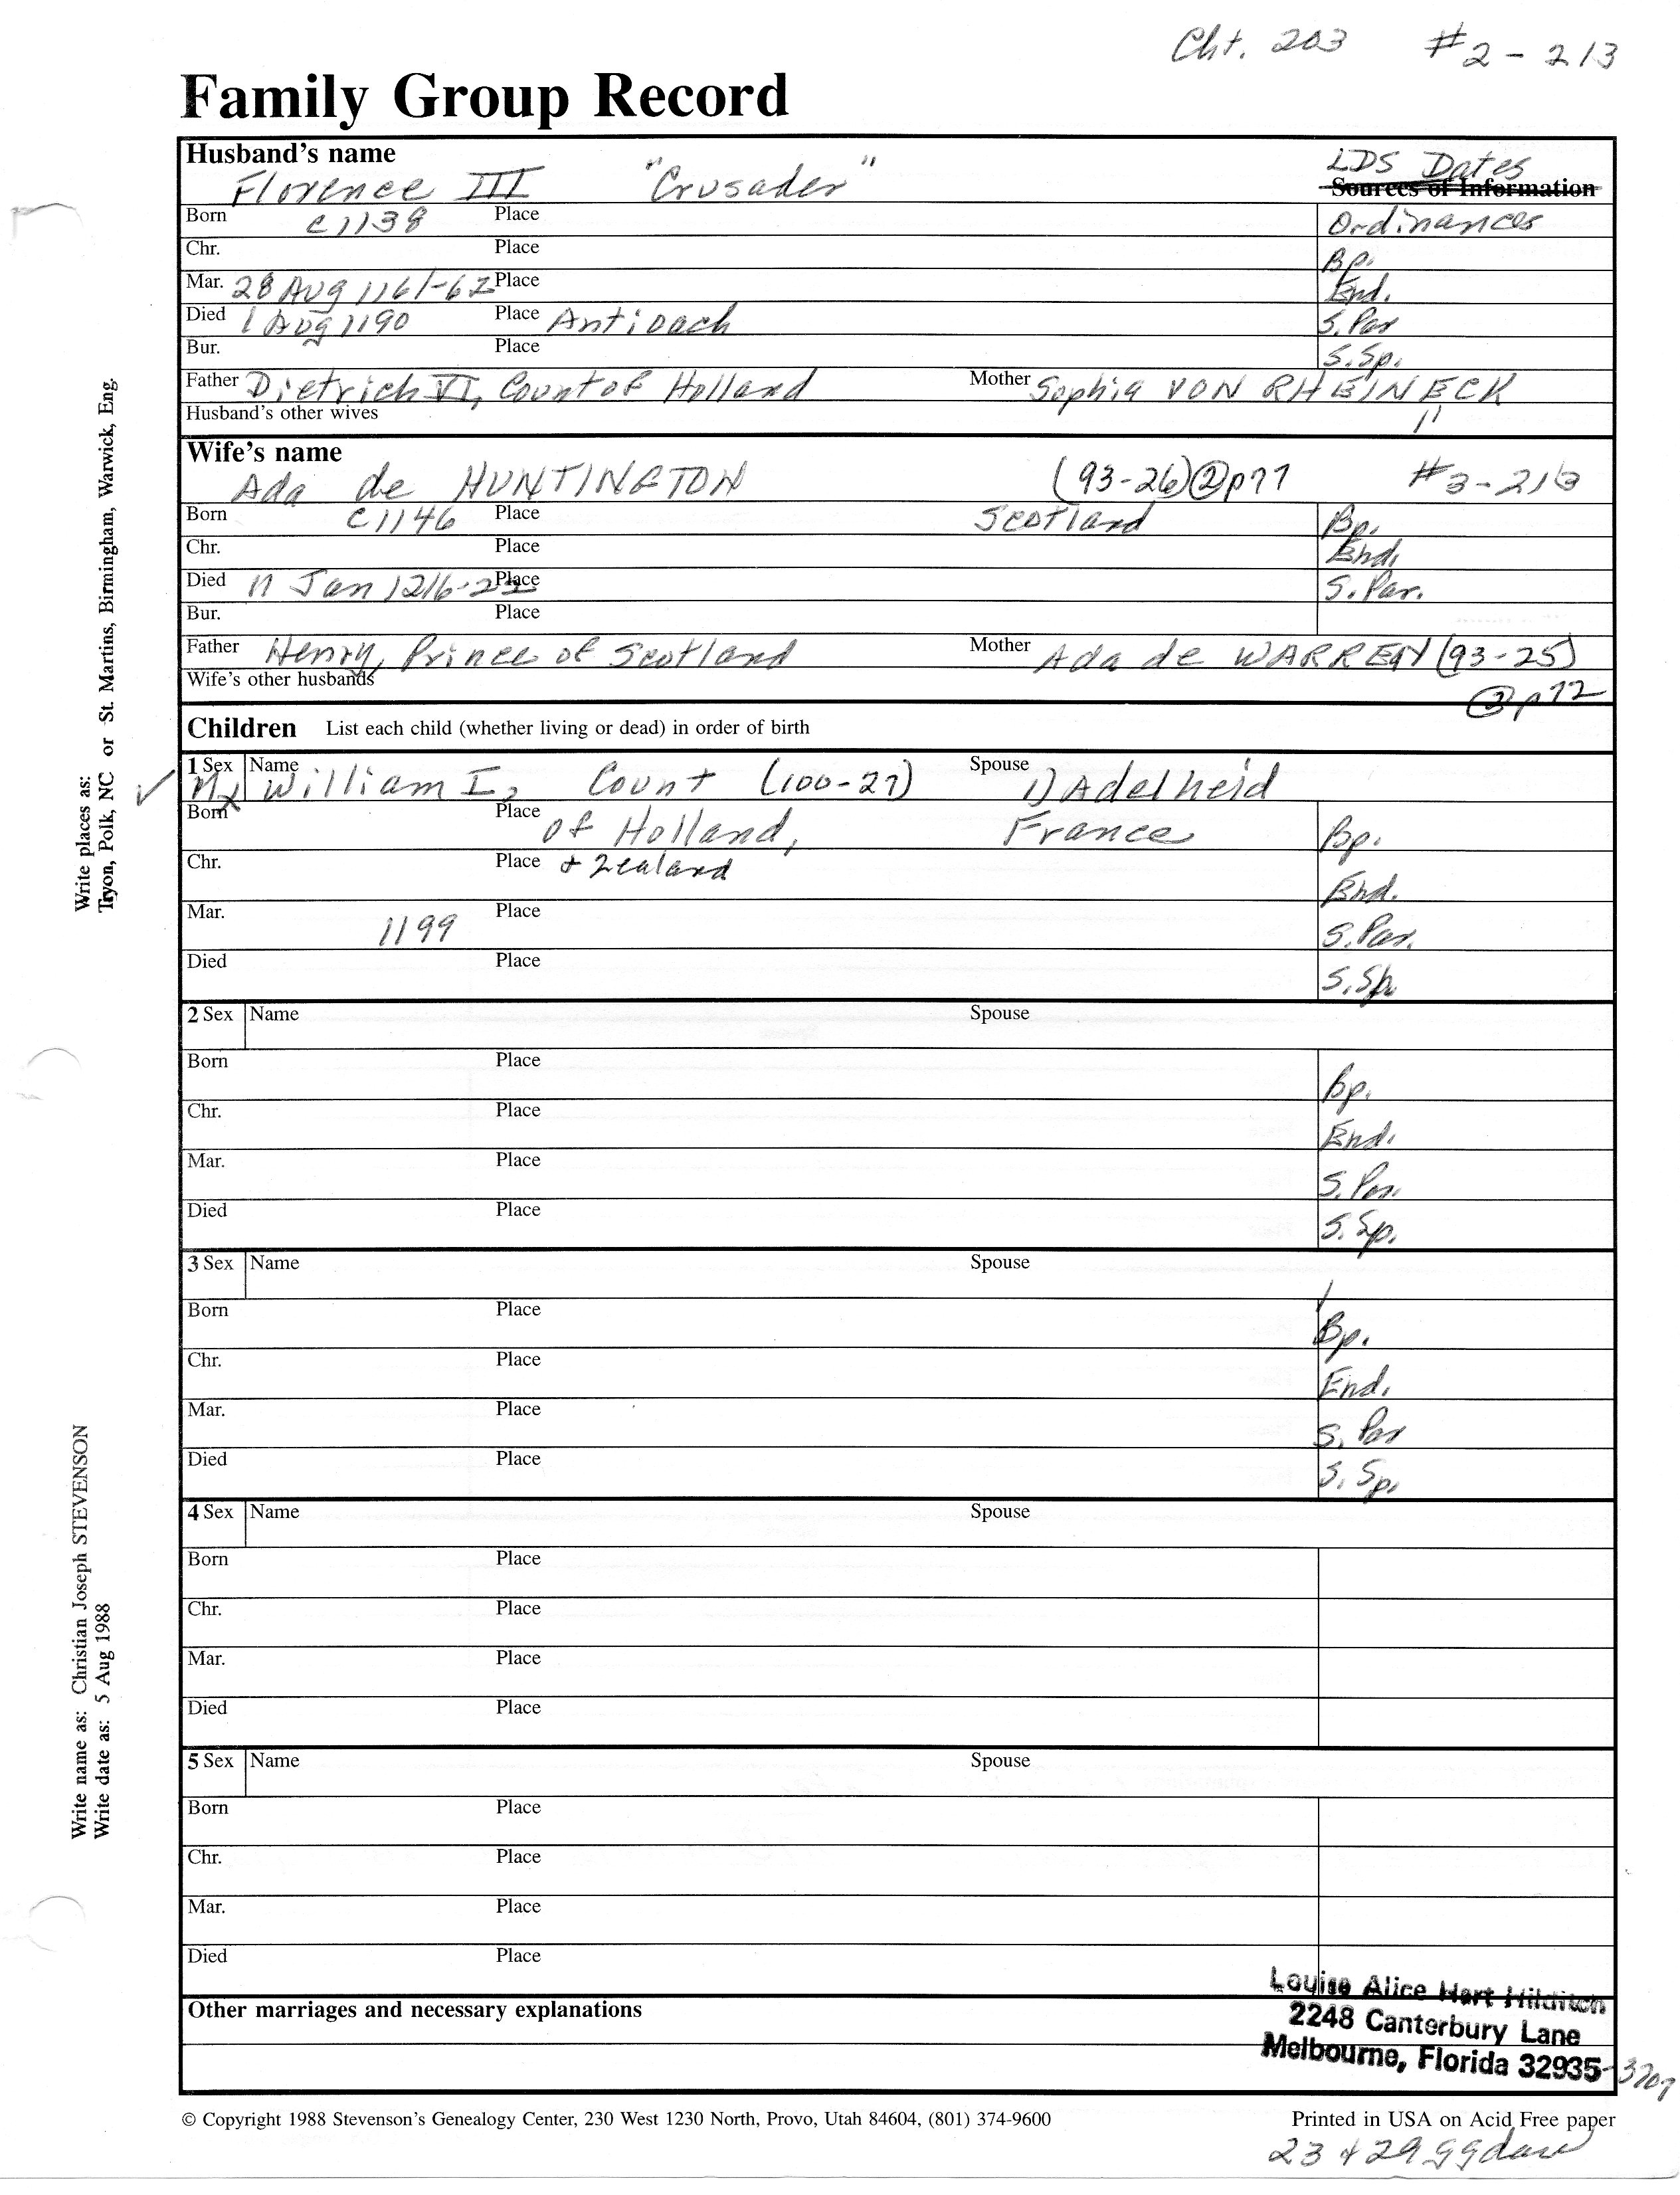 Cht. 203 #2-213
Family Group Record
Husband's name
Florence III "Crusader"
LDS Dates
Sources of Information
Born c1138 Place Ordinances
Chr. Place Bp.
Mar. 28 Aug 1161-62 Place End.
Died 1 Aug 1190 Place Antioach S. Par
Bur. Place S. Sp.
Father Dietrich VI, Count of Holland Mother Sophia VON RHEINECK
Husband's other wives "
Wife's name
Ada de HUNTINGTON (93-26)@p77 #3-213
Born c1146 Place Scotland Bp.
Chr. Place End.
Died 11 Jan 1216-22 Place S. Par.
Bur. Place
Father Henry, Prince of Scotland Mother Ada de WARREN (93-25)
Wife's other husbands @p72
Children List each child (whether living or dead) in order of birth
1 Sex Name William I, Count (100-27) Spouse 1) Adelheid
Born Place of Holland, France Bp.
Chr. Place + Zealand End.
Mar. 1199 Place S. Par.
Died Place S. Sp.
2 Sex Name Spouse
Born Place Bp.
Chr. Place End.
Mar. Place S. Par.
Died Place S. Sp.
3 Sex Name Spouse
Born Place Bp.
Chr. Place End.
Mar. Place S. Par
Died Place S. Sp.
4 Sex Name Spouse
Born Place
Chr. Place
Mar. Place
Died Place
5 Sex Name Spouse
Born Place
Chr. Place
Mar. Place
Died Place
Other marriages and necessary explanations
Louise Alice Hart Hilditch
2248 Canterbury Lane
Melbourne, Florida 32935-3207
© Copyright 1988 Stevenson's Genealogy Center, 230 West 1230 North, Provo, Utah 84604, (801) 374-9600 Printed in USA on Acid Free paper
23 + 29 ggdau
Write places as:
Tryon, Polk, NC or St. Martins, Birmingham, Warwick, Eng.
Write name as: Christian Joseph STEVENSON
Write date as: 5 Aug 1988